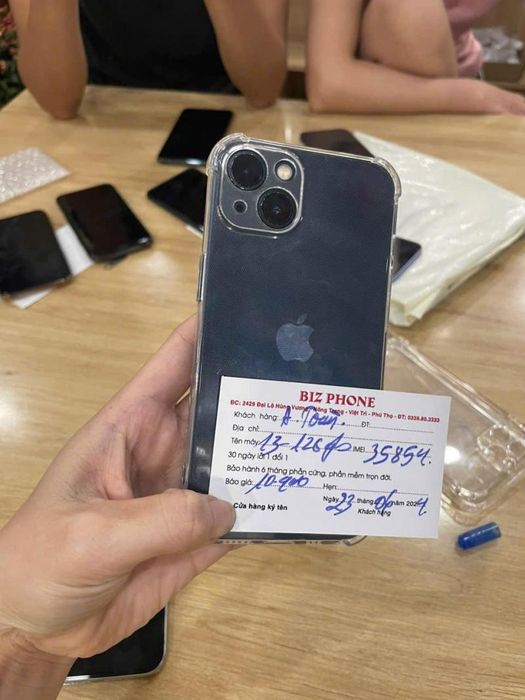 BIZ PHONE
ĐC: 2429 Đại Lộ Hùng Vương - Nông Trang - Việt Trì - Phú Thọ - ĐT: 0328.80.3333
Khách hàng: A Toán ĐT:
Địa chỉ:
Tên máy: 13-128 IMEI: 35854.
30 ngày lỗi 1 đổi 1
Bảo hành 6 tháng phần cứng, phần mềm trọn đời.
Báo giá: 10.900 Hẹn:
Ngày 23 tháng 06 năm 2024
Cửa hàng ký tên Khách hàng